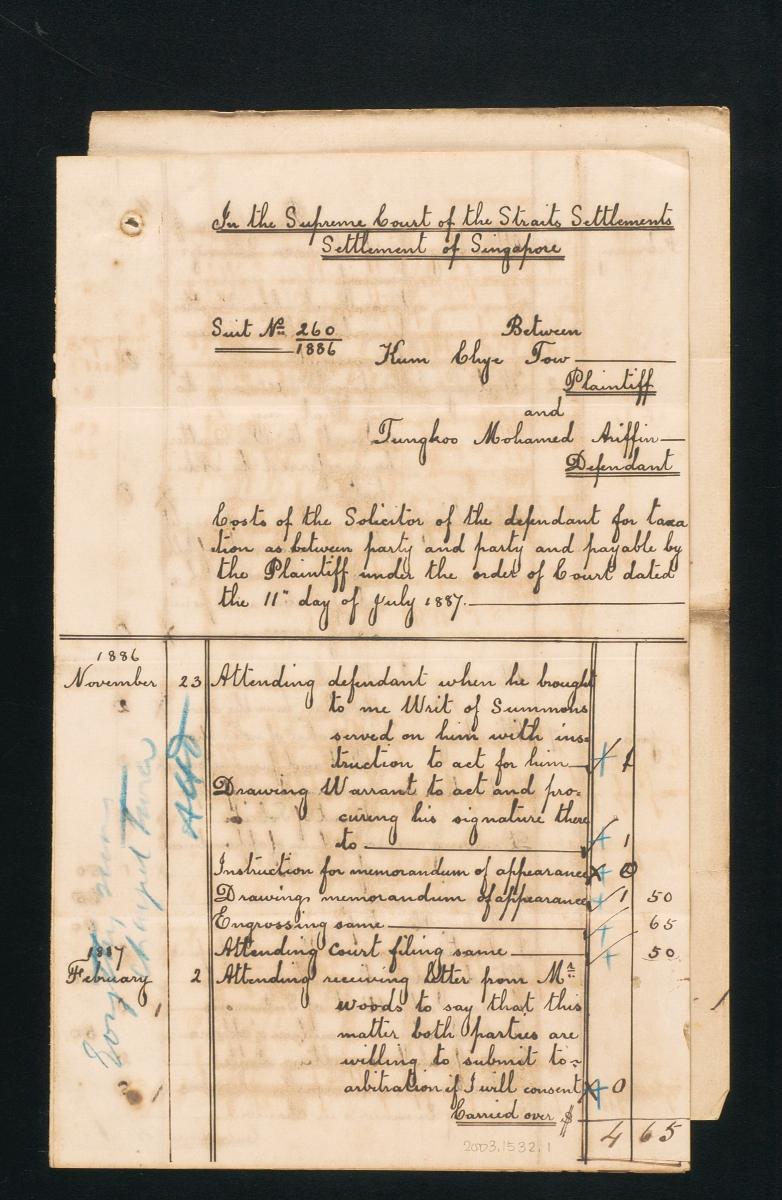 In the Supreme Court of the Straits Settlements
Settlement of Singapore
Suit No. 260
1886
Between
Kum Chye Tow
Plaintiff
and
Tungkoo Mohamed Ariffin
Defendant
Costs of the Solicitor of the defendant for taxa
tion as between party and party and payable by
the Plaintiff under the order of Court dated
the 11" day of July 1887.
1886
November 23 Attending defendant when he brought
to me Writ of Summons
served on him with ins=
truction to act for him 1
Drawing Warrant to act and pro=
curing his signature there
to 1
Instruction for memorandum of appearance 0
Drawings memorandum of appearance 1 50
Engrossing same 65
Attending Court filing same 50
1887
February 2 Attending receiving letter from Mr
woods to say that this
matter both parties are
willing to submit to=
arbitration if I will consent 0
Carried over $ 4 65
2003.1532.1